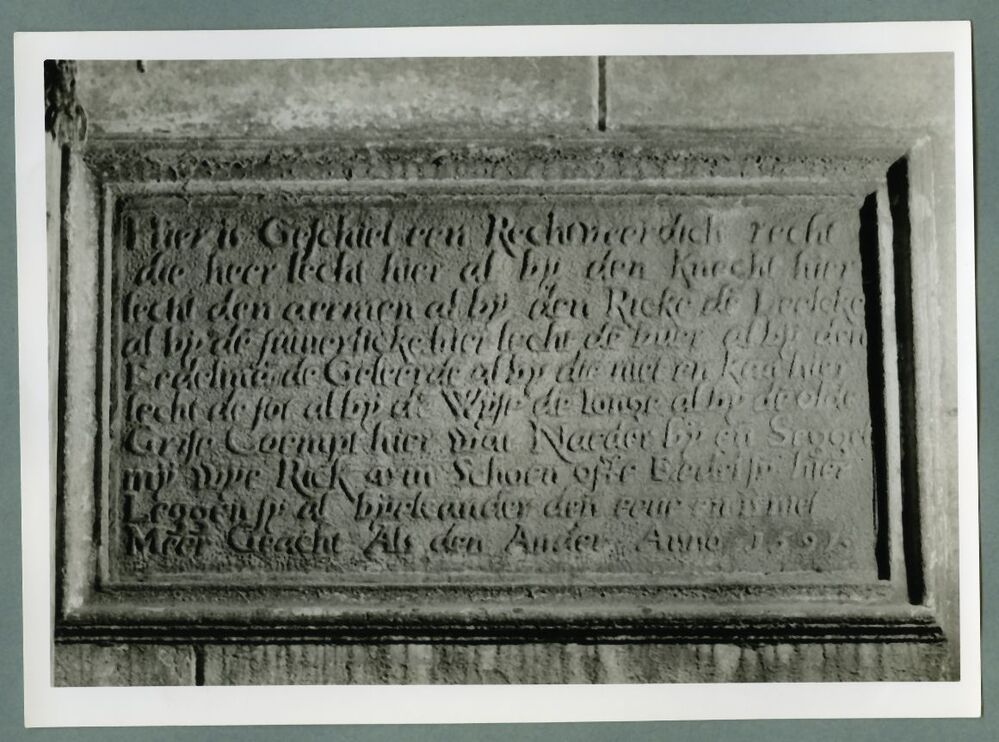 Hier is Geschiet een Rechtveerdich recht
die heer lecht hier al bij den Knecht hier
lecht den aermen al bij den Ricke de Leelcke
al bij de suiverlicke hier lecht de buer al bij den
Eedelman de Geleerde al bij die niet en kan hier
lecht de sot al bij de Wijse de Jonge al bij de olde
Grise Coempt hier wat Naeder bij en Segget
mij wye Rick arm Schoen ofte Eedel sy hier
Leggen sy al bijelcander den eene en is niet
Meer Geacht Als den Ander Anno